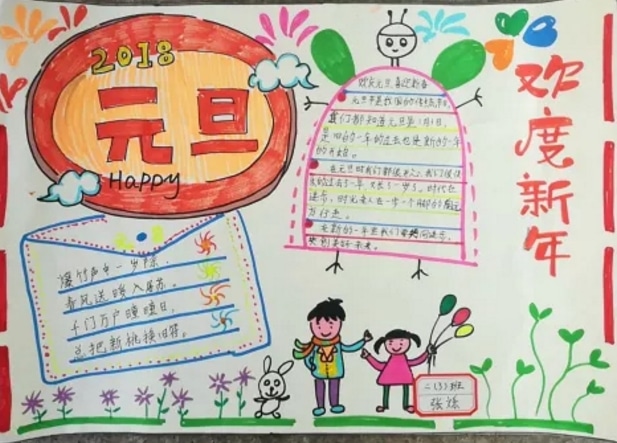 2018
元旦
Happy
欢庆元旦 喜迎新春
元旦节是我国的传统节日,
我们都知道元旦是1月1日,
是旧的一年的过去也是新的一年
的开始。
在元旦时我们都很开心,我们快
乐的过去了一年,又长了一岁了。时代在
进步,时光老人在一步一个脚印的
方行走。
在新的一年里我们要
美好的未来。
爆竹声中一岁除,
春风送暖入屠苏。
千门万户曈曈日,
总把新桃换旧符。
欢度新年
二(3)班
张烁